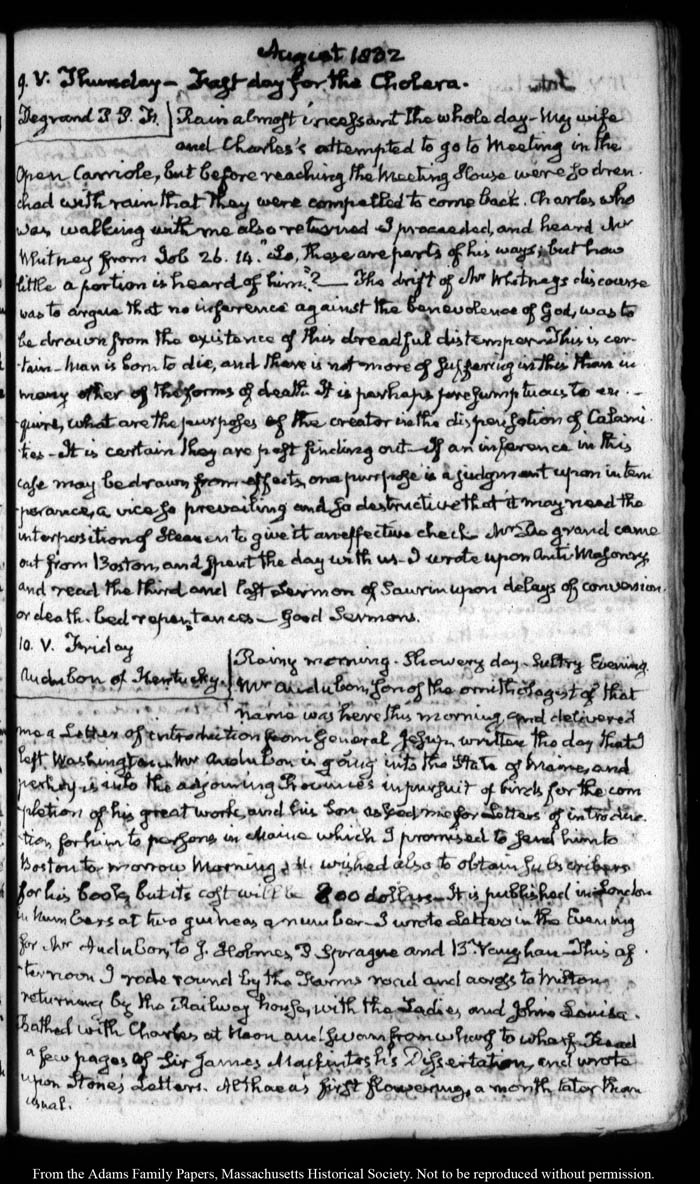 August 1832
9. V. Thursday — Fast day for the Cholera.
Degrand P. P. F. Rain almost incessant the whole day — My wife
and Charles's attempted to go to Meeting in the
Open Carriole, but before reaching the Meeting House were so dren
ched with rain that they were compelled to come back. Charles who
was walking with me also returned I proceeded, and heard Mr
Whitney from Job 26. 14. "Lo, these are parts of his ways; but how
little a portion is heard of him"? — The drift of Mr Whitney's discourse
was to argue that no inference against the benevolence of God, was to
be drawn from the existence of this dreadful distemper — This is cer-
tain — Man is born to die, and there is not more of suffering in this than in
many other of the forms of death. It is perhaps presumptuous to en-
quire, what are the purposes of the creator in the dispensation of Calami-
ties — It is certain they are past finding out — If an inference in this
case may be drawn from effects, one purpose is a judgment upon intem
perance, a vice so prevailing and so destructive that it may need the
interposition of Heaven to give it an effective check. Mr De grand came
out from Boston, and spent the day with us — I wrote upon Anti-Masonry
and read the third and last Sermon of Saurin upon delays of conversion
or death-bed repentances — Good Sermons.
10. V. Friday
Audubon of Kentucky. Rainy morning. Showery day. Sultry Evening.
Mr Audubon, son of the ornithologist of that
name was here this morning, and delivered
me a Letter of introduction from General Jesup, written the day that I
left Washington. Mr Audubon is going into the State of Maine, and
perhaps into the adjoining Provinces in pursuit of birds for the com
pletion of his great work, and his Son asked me for Letters of introduc-
tion for him to persons in Maine which I promised to send him to
Boston to-morrow Morning. He wished also to obtain subscribers
for his book, but its cost will be 800 dollars — It is published in London
in numbers at two guineas a number — I wrote Letters in the Evening
for Mr Audubon, to J. Holmes, P. Sprague and B. Vaughan — This af-
ternoon I rode round by the Farms road and across to Milton,
returning by the Railway house, with the Ladies and John's Louisa.
Bathed with Charles at Noon and swam from wharf to wharf. Read
a few pages of Sir James Mackintosh's Dissertation, and wrote
upon Stone's Letters. Althaea's first flowering, a month later than
usual.
From the Adams Family Papers, Massachusetts Historical Society. Not to be reproduced without permission.